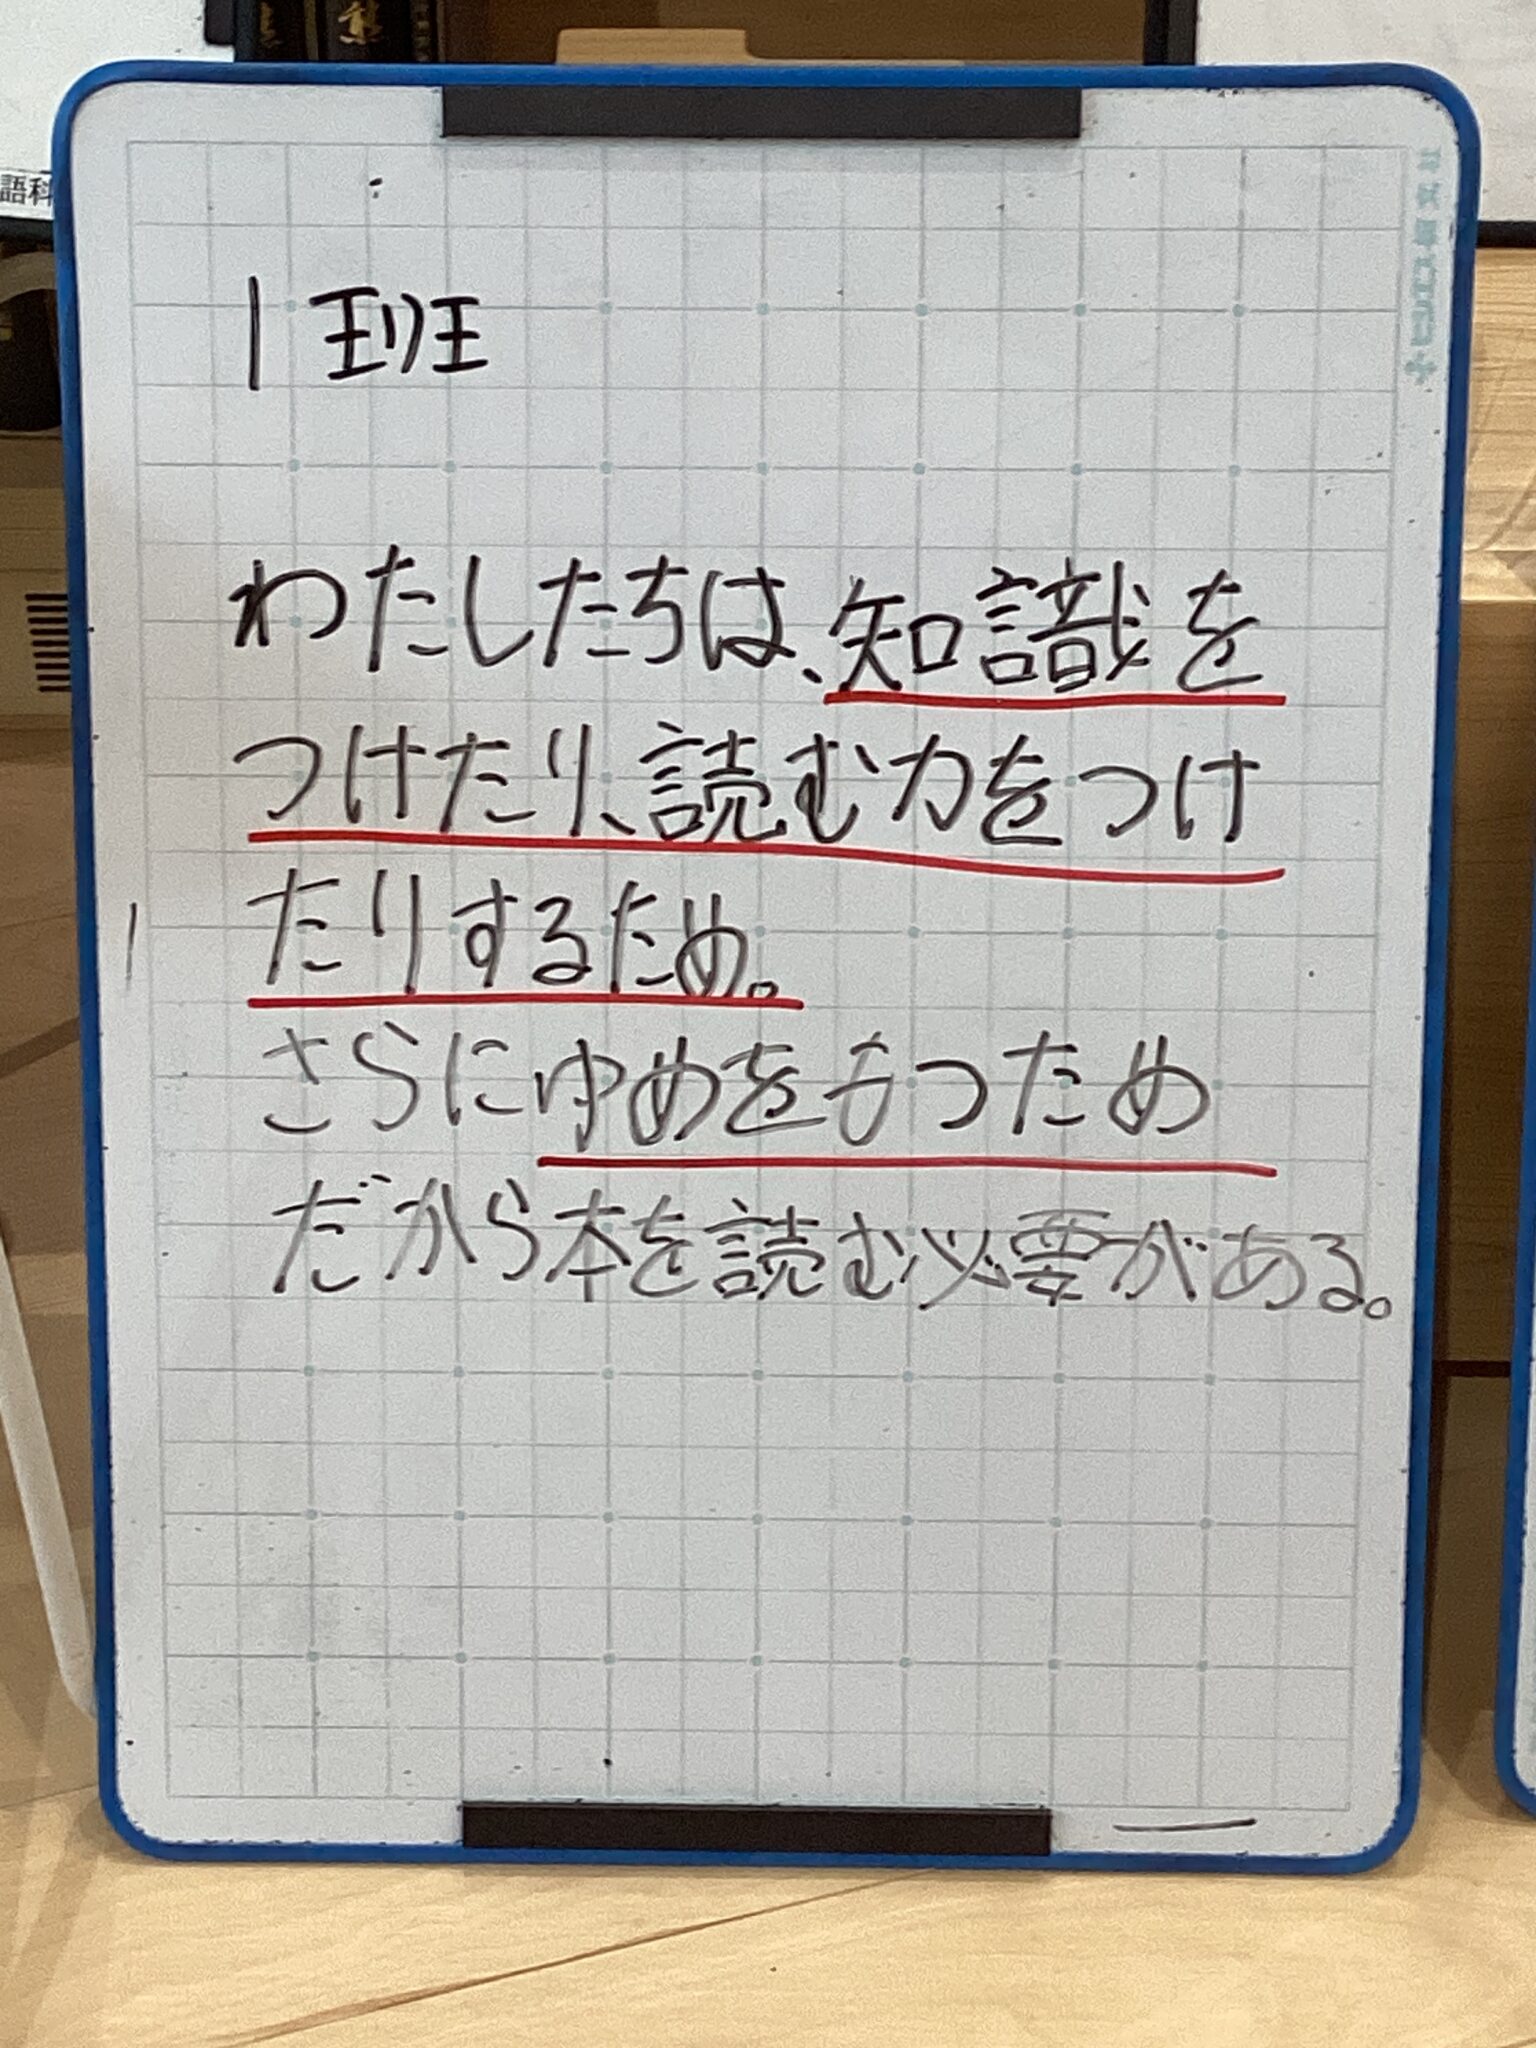 語科
1 班
わたしたちは、知識を
つけたり、読む力をつけ
たりするため。
さらにゆめをもつため
だから本を読む必要がある。